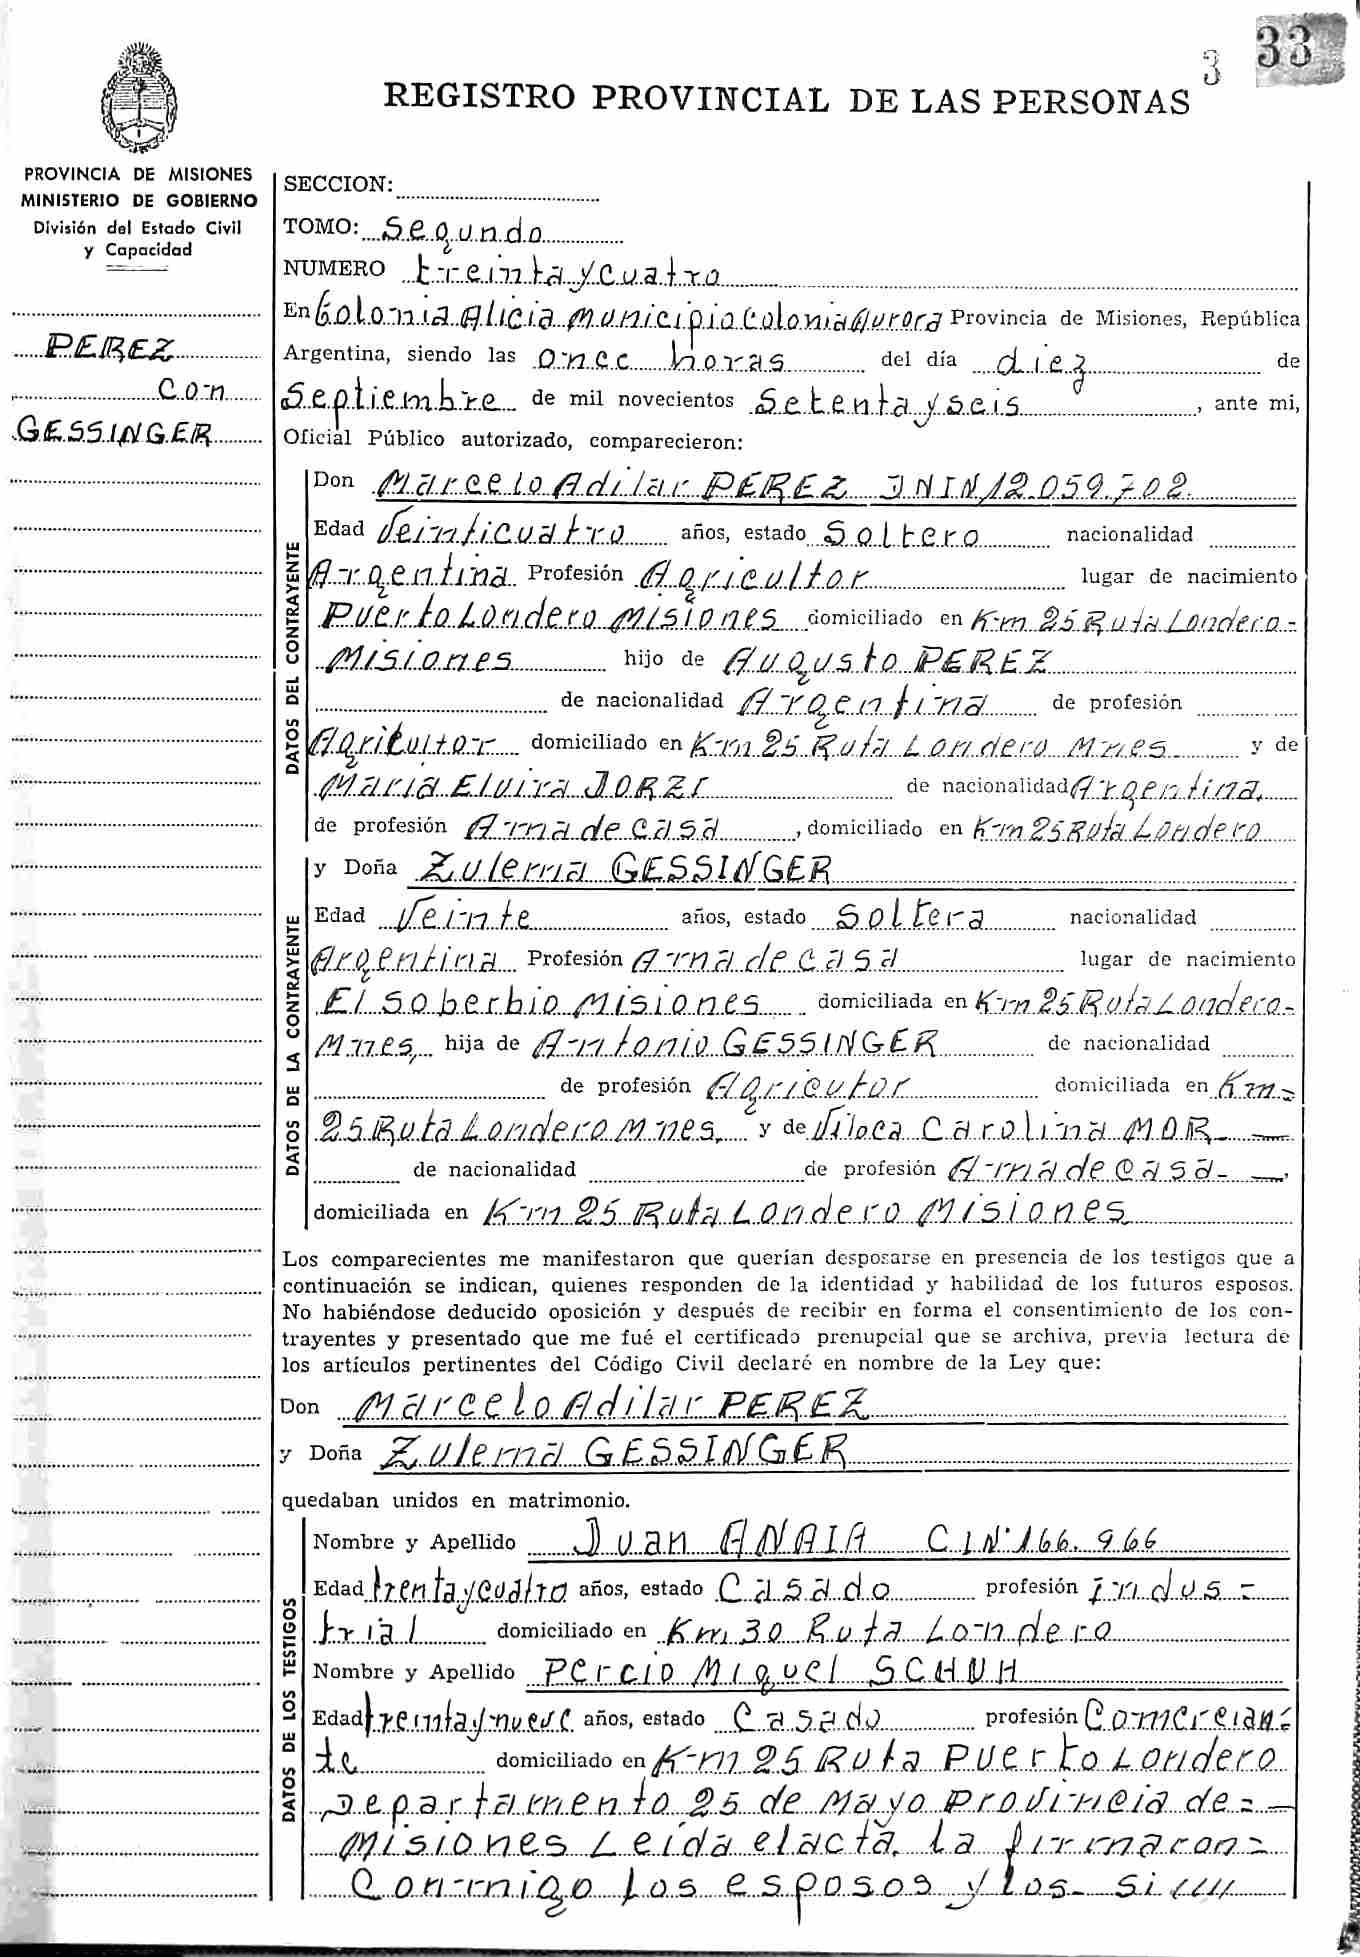 3 33
REGISTRO PROVINCIAL DE LAS PERSONAS
PROVINCIA DE MISIONES
MINISTERIO DE GOBIERNO
División del Estado Civil
y Capacidad
PEREZ
con
GESSINGER
SECCION:
TOMO: Segundo
NUMERO treinta y cuatro
En Colonia Alicia Municipio Colonia Aurora Provincia de Misiones, República
Argentina, siendo las once horas del día diez de
Septiembre de mil novecientos Setenta y seis, ante mi,
Oficial Público autorizado, comparecieron:
DATOS DEL CONTRAYENTE
Don Marcelo Adilar PEREZ DNIN/12.059.702.
Edad Veinticuatro años, estado Soltero nacionalidad
Argentina. Profesión Agricultor lugar de nacimiento
Puerto Londero Misiones domiciliado en Km 25 Ruta Londero-
Misiones hijo de Augusto PEREZ
de nacionalidad Argentina de profesión
Agricultor domiciliado en Km 25 Ruta Londero Mnes y de
Maria Elvira JORZI de nacionalidad Argentina,
de profesión Ama de Casa, domiciliado en Km 25 Ruta Londero
DATOS DE LA CONTRAYENTE
y Doña Zulema GESSINGER
Edad Veinte años, estado Soltera nacionalidad
Argentina Profesión Ama de Casa lugar de nacimiento
El Soberbio Misiones domiciliada en Km 25 Ruta Londero-
Mnes, hija de Antonio GESSINGER de nacionalidad
de profesión Agricutor domiciliada en Km-
25 Ruta Londero Mnes, y de Viloca Carolina MOR-
de nacionalidad de profesión Ama de Casa-,
domiciliada en Km 25 Ruta Londero Misiones
Los comparecientes me manifestaron que querían desposarse en presencia de los testigos que a
continuación se indican, quienes responden de la identidad y habilidad de los futuros esposos.
No habiéndose deducido oposición y después de recibir en forma el consentimiento de los con-
trayentes y presentado que me fué el certificado prenupcial que se archiva, previa lectura de
los artículos pertinentes del Código Civil declaré en nombre de la Ley que:
Don Marcelo Adilar PEREZ
y Doña Zulema GESSINGER
quedaban unidos en matrimonio.
DATOS DE LOS TESTIGOS
Nombre y Apellido Juan ANAIA CIN°166.966
Edad trenta y cuatro años, estado Casado profesión indus-
trial domiciliado en Km 30 Ruta Londero
Nombre y Apellido Percio Miguel SCHUH
Edad treinta y nueve años, estado Casado profesión Comercian-
te domiciliado en Km 25 Ruta Puerto Londero
Departamento 25 de Mayo Provincia de-
Misiones Leída el acta, la firmaron-
Conmigo los esposos y los-